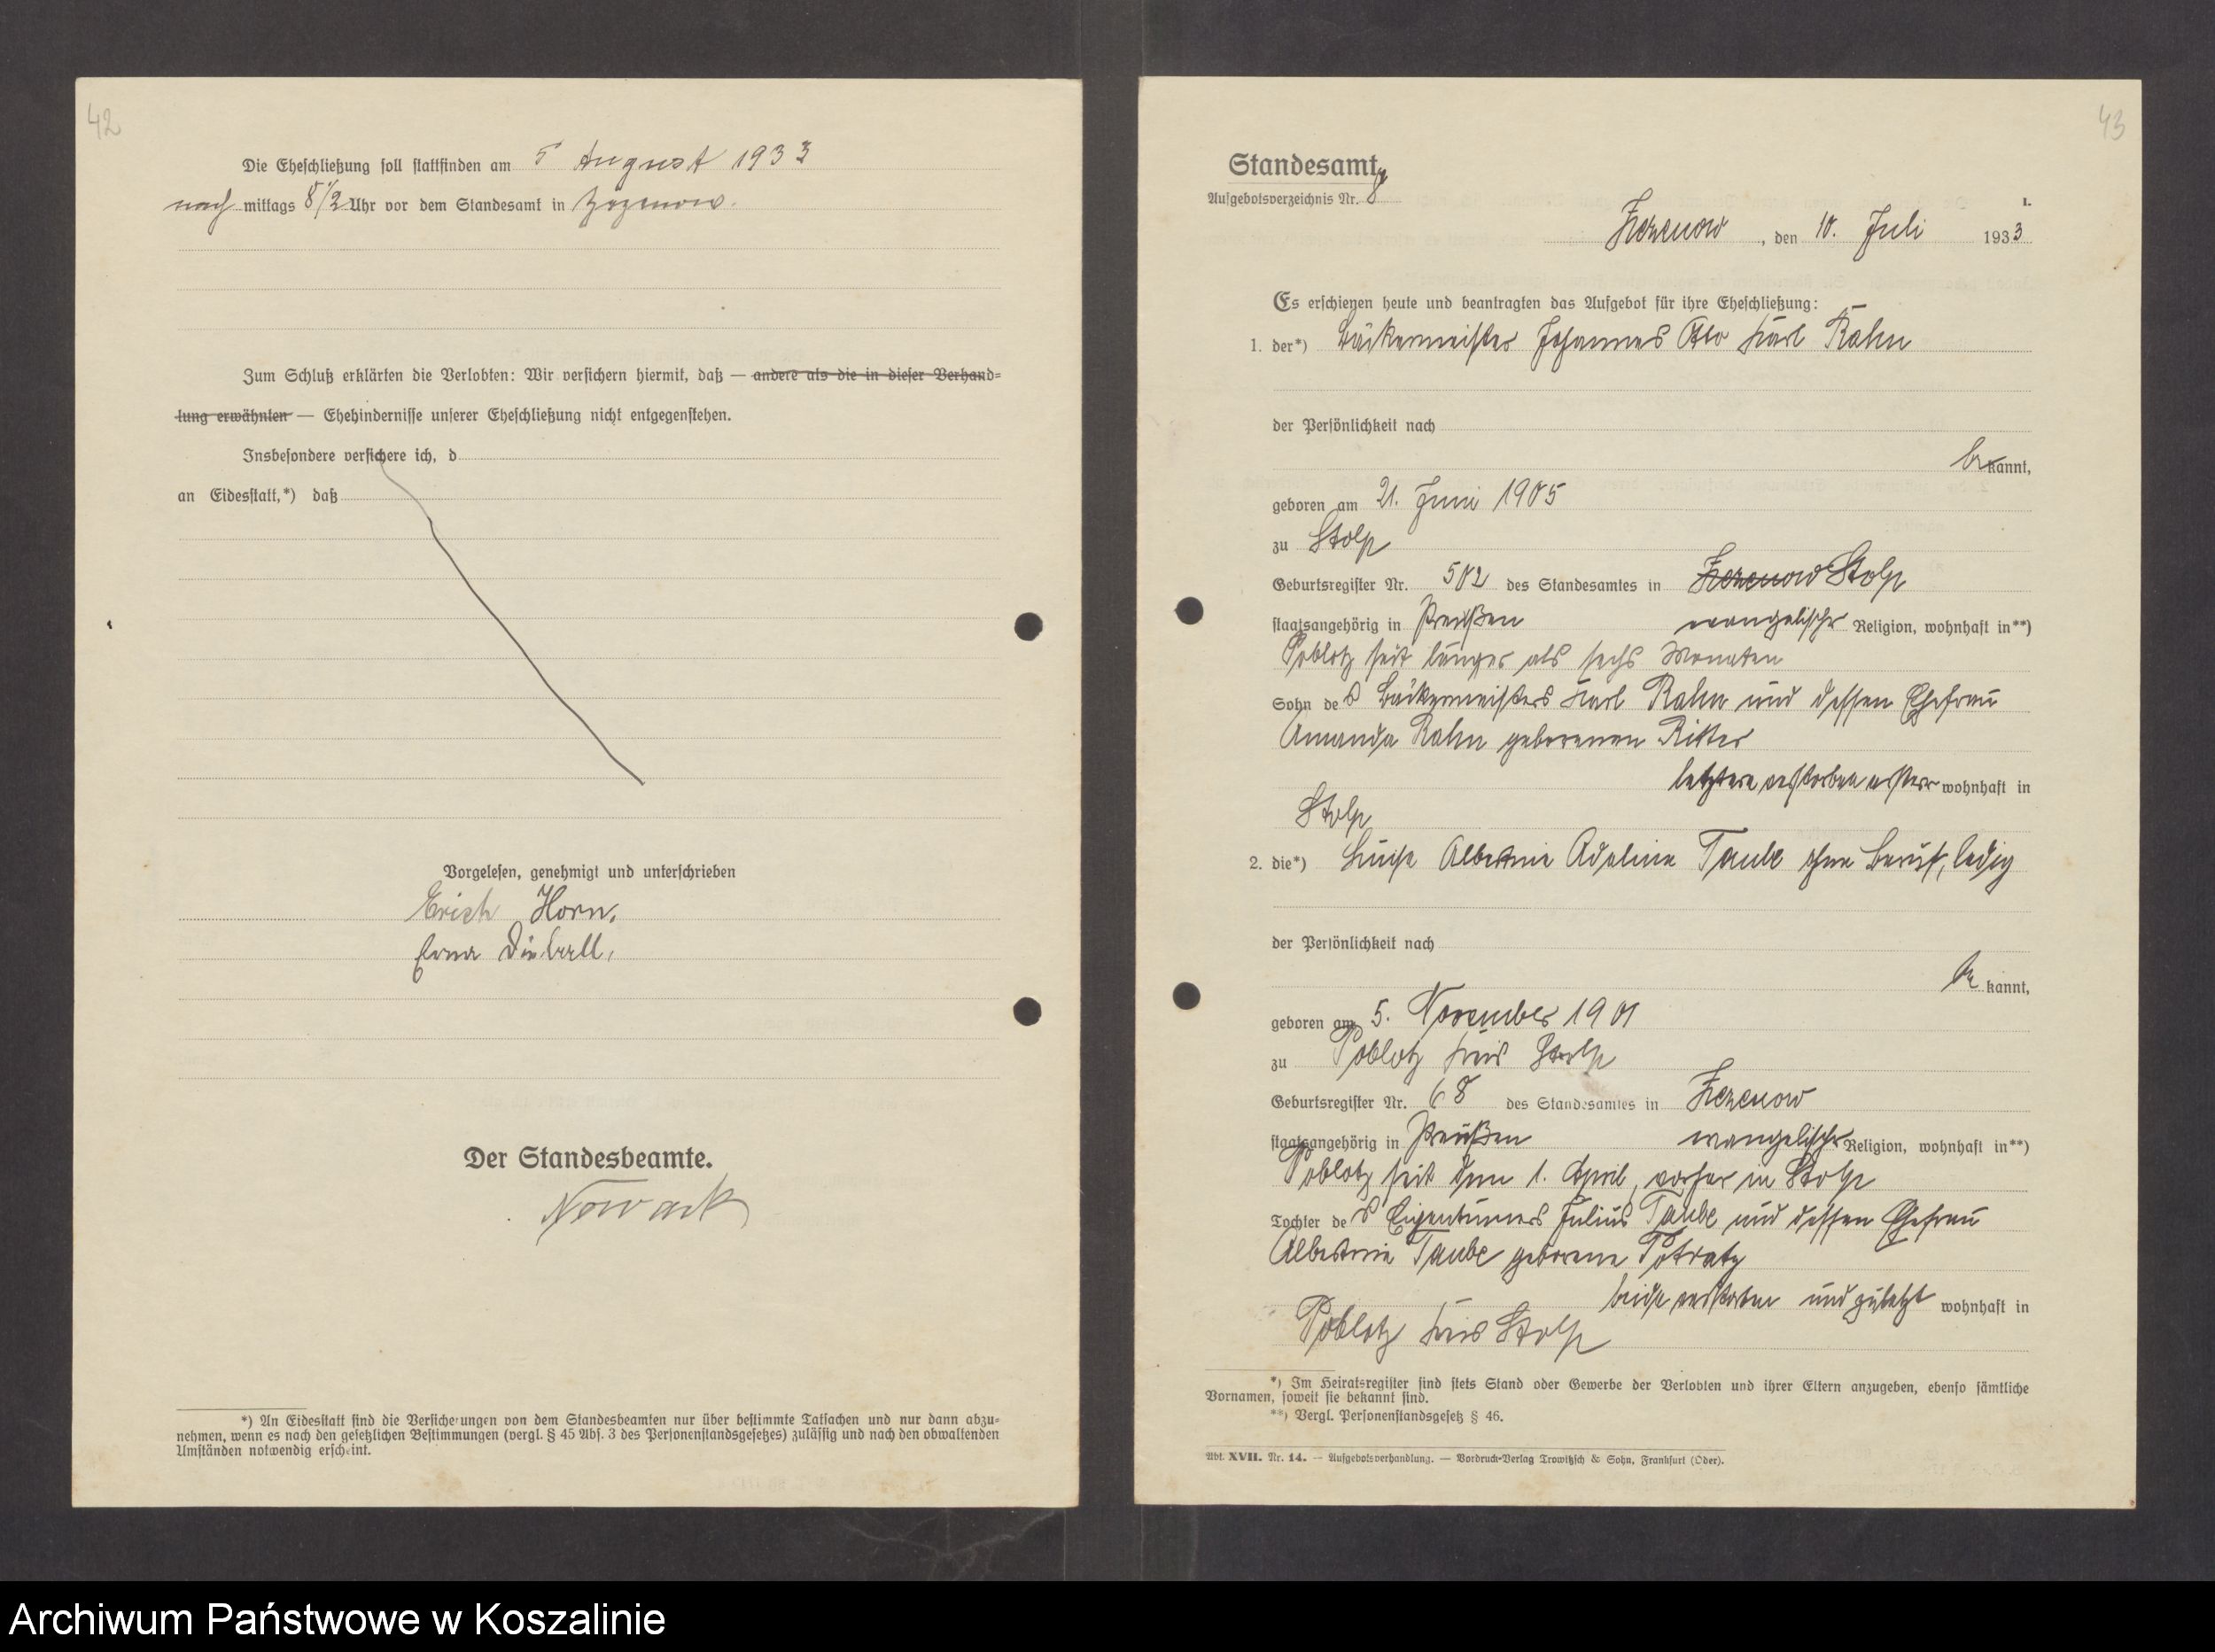 42
Die Eheschließung soll stattfinden am 5 August 1933
nach mittags 8 1/2 Uhr vor dem Standesamt in Zezenow.
Zum Schluß erklärten die Verlobten: Wir versichern hiermit, daß — andere als die in dieser Verhand-
lung erwähnten — Ehehindernisse unserer Eheschließung nicht entgegenstehen.
Insbesondere versichere ich, d
an Eidesstatt,*) daß
Vorgelesen, genehmigt und unterschrieben
Erich Horn.
Erna
Der Standesbeamte.
Nowack
*) An Eidesstatt sind die Versicherungen von dem Standesbeamten nur über bestimmte Tatsachen und nur dann abzu-
nehmen, wenn es nach den gesetzlichen Bestimmungen (vergl. § 45 Abs. 3 des Personenstandsgesetzes) zulässig und nach den obwaltenden
Umständen notwendig erscheint.
43
Standesamt
Aufgebotsverzeichnis Nr. 8
1.
Zezenow, den 10. Juli 1933
Es erschienen heute und beantragten das Aufgebot für ihre Eheschließung:
1. der*) Bäckermeister Johannes Otto Karl Rahn
der Persönlichkeit nach
bekannt,
geboren am 21. Juni 1905
zu Stolp
Geburtsregister Nr. 502 des Standesamtes in Zezenow Stolp
staatsangehörig in Preußen evangelischer Religion, wohnhaft in**)
Poblotz seit länger als sechs Monaten
Sohn des Bäckermeisters Karl Rahn und dessen Ehefrau
Amanda Rahn geborenen Ritter
letztere verstorben ersterer wohnhaft in
Stolp
2. die*) Luise Albertine Adeline Taube ohne Beruf, ledig
der Persönlichkeit nach
be kannt,
geboren am 5. November 1901
zu Poblotz Kreis Stolp
Geburtsregister Nr. 68 des Standesamtes in Zezenow
staatsangehörig in Preußen evangelischer Religion, wohnhaft in**)
Poblotz seit dem 1. April, vorher in Stolp
Tochter des Eigentümers Julius Taube und dessen Ehefrau
Albertine Taube geborene Potratz
beide verstorben und zuletzt wohnhaft in
Poblotz Kreis Stolp
*) Im Heiratsregister sind stets Stand oder Gewerbe der Verlobten und ihrer Eltern anzugeben, ebenso sämtliche
Vornamen, soweit sie bekannt sind.
**) Vergl. Personenstandsgesetz § 46.
Abt. XVII. Nr. 14. — Aufgebotsverhandlung. — Vordruck-Verlag Trowitzsch & Sohn, Frankfurt (Oder).
Archiwum Państwowe w Koszalinie